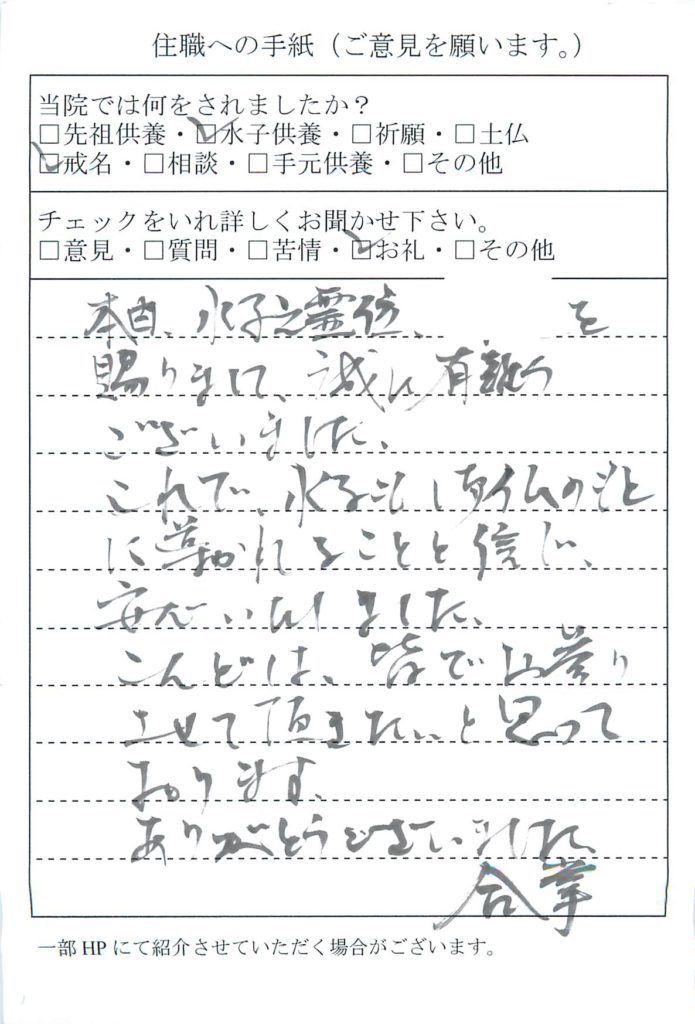 住職への手紙（ご意見を願います。）
当院では何をされましたか？
□先祖供養・□水子供養・□祈願・□土仏
□戒名・□相談・□手元供養・□その他
チェックをいれ詳しくお聞かせ下さい。
□意見・□質問・□苦情・□お礼・□その他
本日、水子之霊位、を
賜りまして、誠に有難う
ございました。
これで、水子も仏のもと
に導かれることと信じ、
安心いたしました。
こんどは、皆でお参り
させて頂きたいと思って
おります。
ありがとうございました。
合掌
一部HPにて紹介させていただく場合がございます。